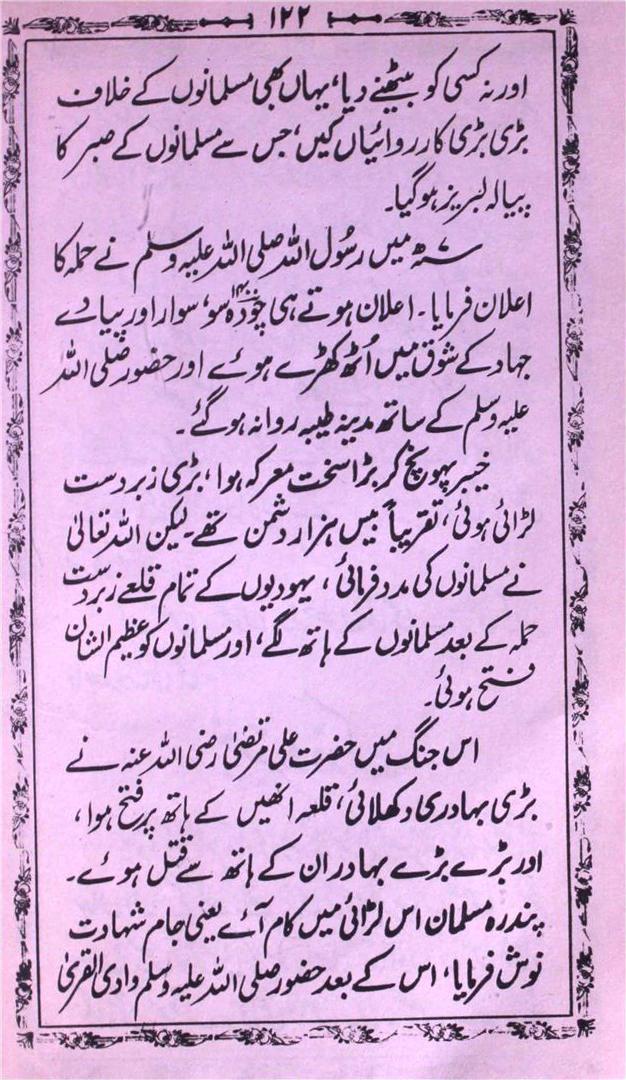 ۱۲۲
اور نہ کسی کو بیٹھنے دیا، یہاں بھی مسلمانوں کے خلاف
بڑی بڑی کارروائیاں کیں، جس سے مسلمانوں کے صبر کا
پیالہ لبریز ہوگیا۔
۷ھ میں رسول اللہ صلی اللہ علیہ وسلم نے حملہ کا
اعلان فرمایا۔ اعلان ہوتے ہی چودہ سو، سوار اور پیادے
جہاد کے شوق میں اُٹھ کھڑے ہوئے اور حضور صلی اللہ
علیہ وسلم کے ساتھ مدینہ طیبہ روانہ ہوگئے۔
خیبر پہونچ کر بڑا سخت معرکہ ہوا، بڑی زبردست
لڑائی ہوئی، تقریباً بیس ہزار دشمن تھے۔ لیکن اللہ تعالیٰ
نے مسلمانوں کی مدد فرمائی، یہودیوں کے تمام قلعے زبردست
حملہ کے بعد مسلمانوں کے ہاتھ لگے، اور مسلمانوں کو عظیم الشان
فتح ہوئی۔
اس جنگ میں حضرت علی مرتضیٰ رضی اللہ عنہ نے
بڑی بہادری دکھلائی، قلعہ انھیں کے ہاتھ پر فتح ہوا،
اور بڑے بڑے بہادر ان کے ہاتھ سے قتل ہوئے۔
پندرہ مسلمان اس لڑائی میں کام آئے یعنی جام شہادت
نوش فرمایا، اس کے بعد حضور صلی اللہ علیہ وسلم وادی القریٰ